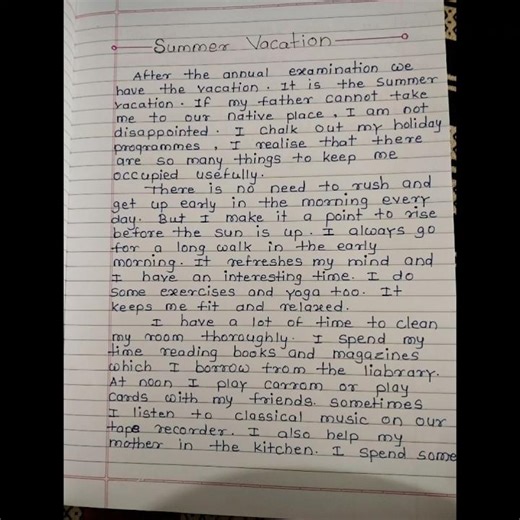 Summer Vacation
After the annual examination we
have the vacation. It is the summer
vacation. If my father cannot take
me to our native place, I am not
disappointed. I chalk out my holiday
programmes, I realise that there
are so many things to keep me
occupied usefully.
There is no need to rush and
get up early in the morning every
day. But I make it a point to rise
before the sun is up. I always go
for a long walk in the early
morning. It refreshes my mind and
I have an interesting time. I do
some exercises and yoga too. It
keeps me fit and relaxed.
I have a lot of time to clean
my room thoroughly. I spend my
time reading books and magazines
which I borrow from the liabrary.
At noon I play carrom or play
cards with my friends. sometimes
I listen to classical music on our
tape recorder. I also help my
mother in the kitchen. I spend some